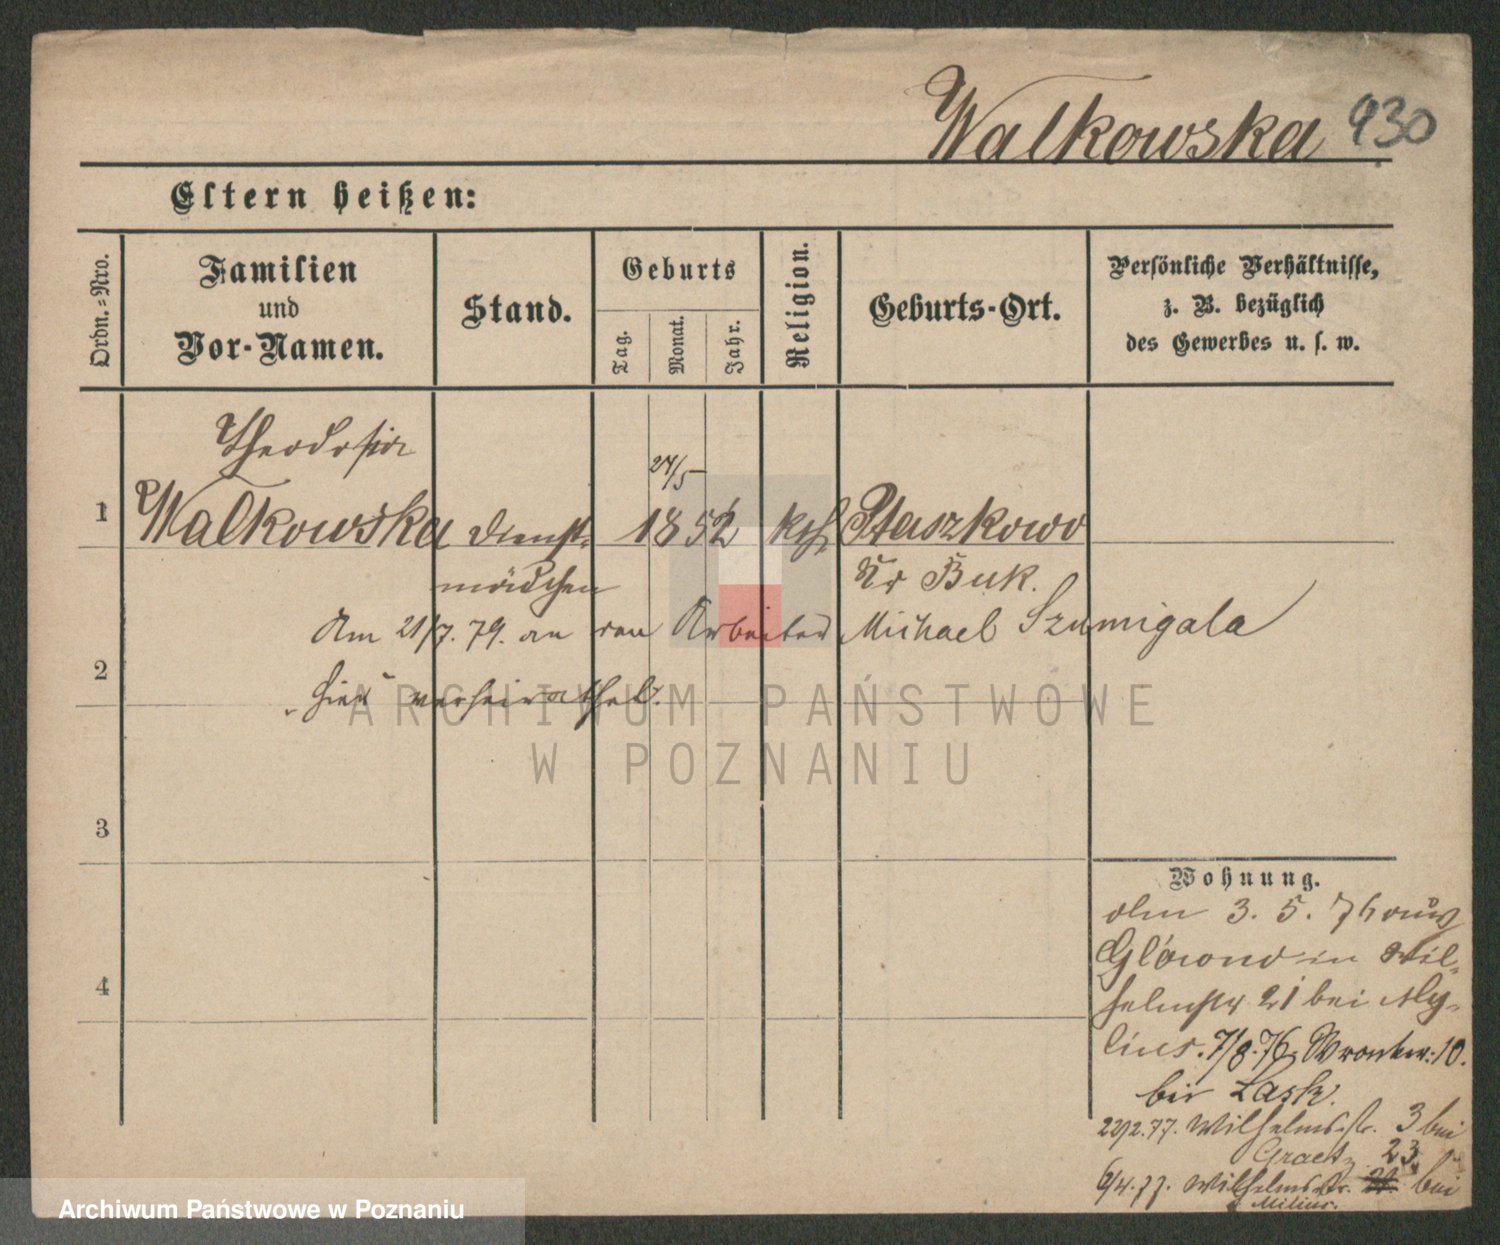 Walkowska 930
Eltern heißen:
Ordn.=Nro.
Familien
und
Vor-Namen.
Stand.
Geburts
Tag.
Monat.
Jahr.
Religion.
Geburts-Ort.
Persönliche Verhältnisse,
z. B. bezüglich
des Gewerbes u. s. w.
Theodosia
24/5
1 Walkowska Dienst- 1852 kth Ptaszkowo
mädchen Kr Buk.
Am 21/7. 79. an den Arbeiter Michael Szumigala
2
hier verheirathet.
ARCHIWUM PAŃSTWOWE
W POZNANIU
3
4
Wohnung.
den 3. 5. 76 aus
Glówno in Wil-
helmstr 21 bei My-
lius. 7/8. 76. Wronker: 10.
bei Lask.
22/2. 77. Wilhelmsstr. 3 bei
Graetz 23
6/4. 77. Wilhelmsstr. bei
Milius.
Archiwum Państwowe w Poznaniu